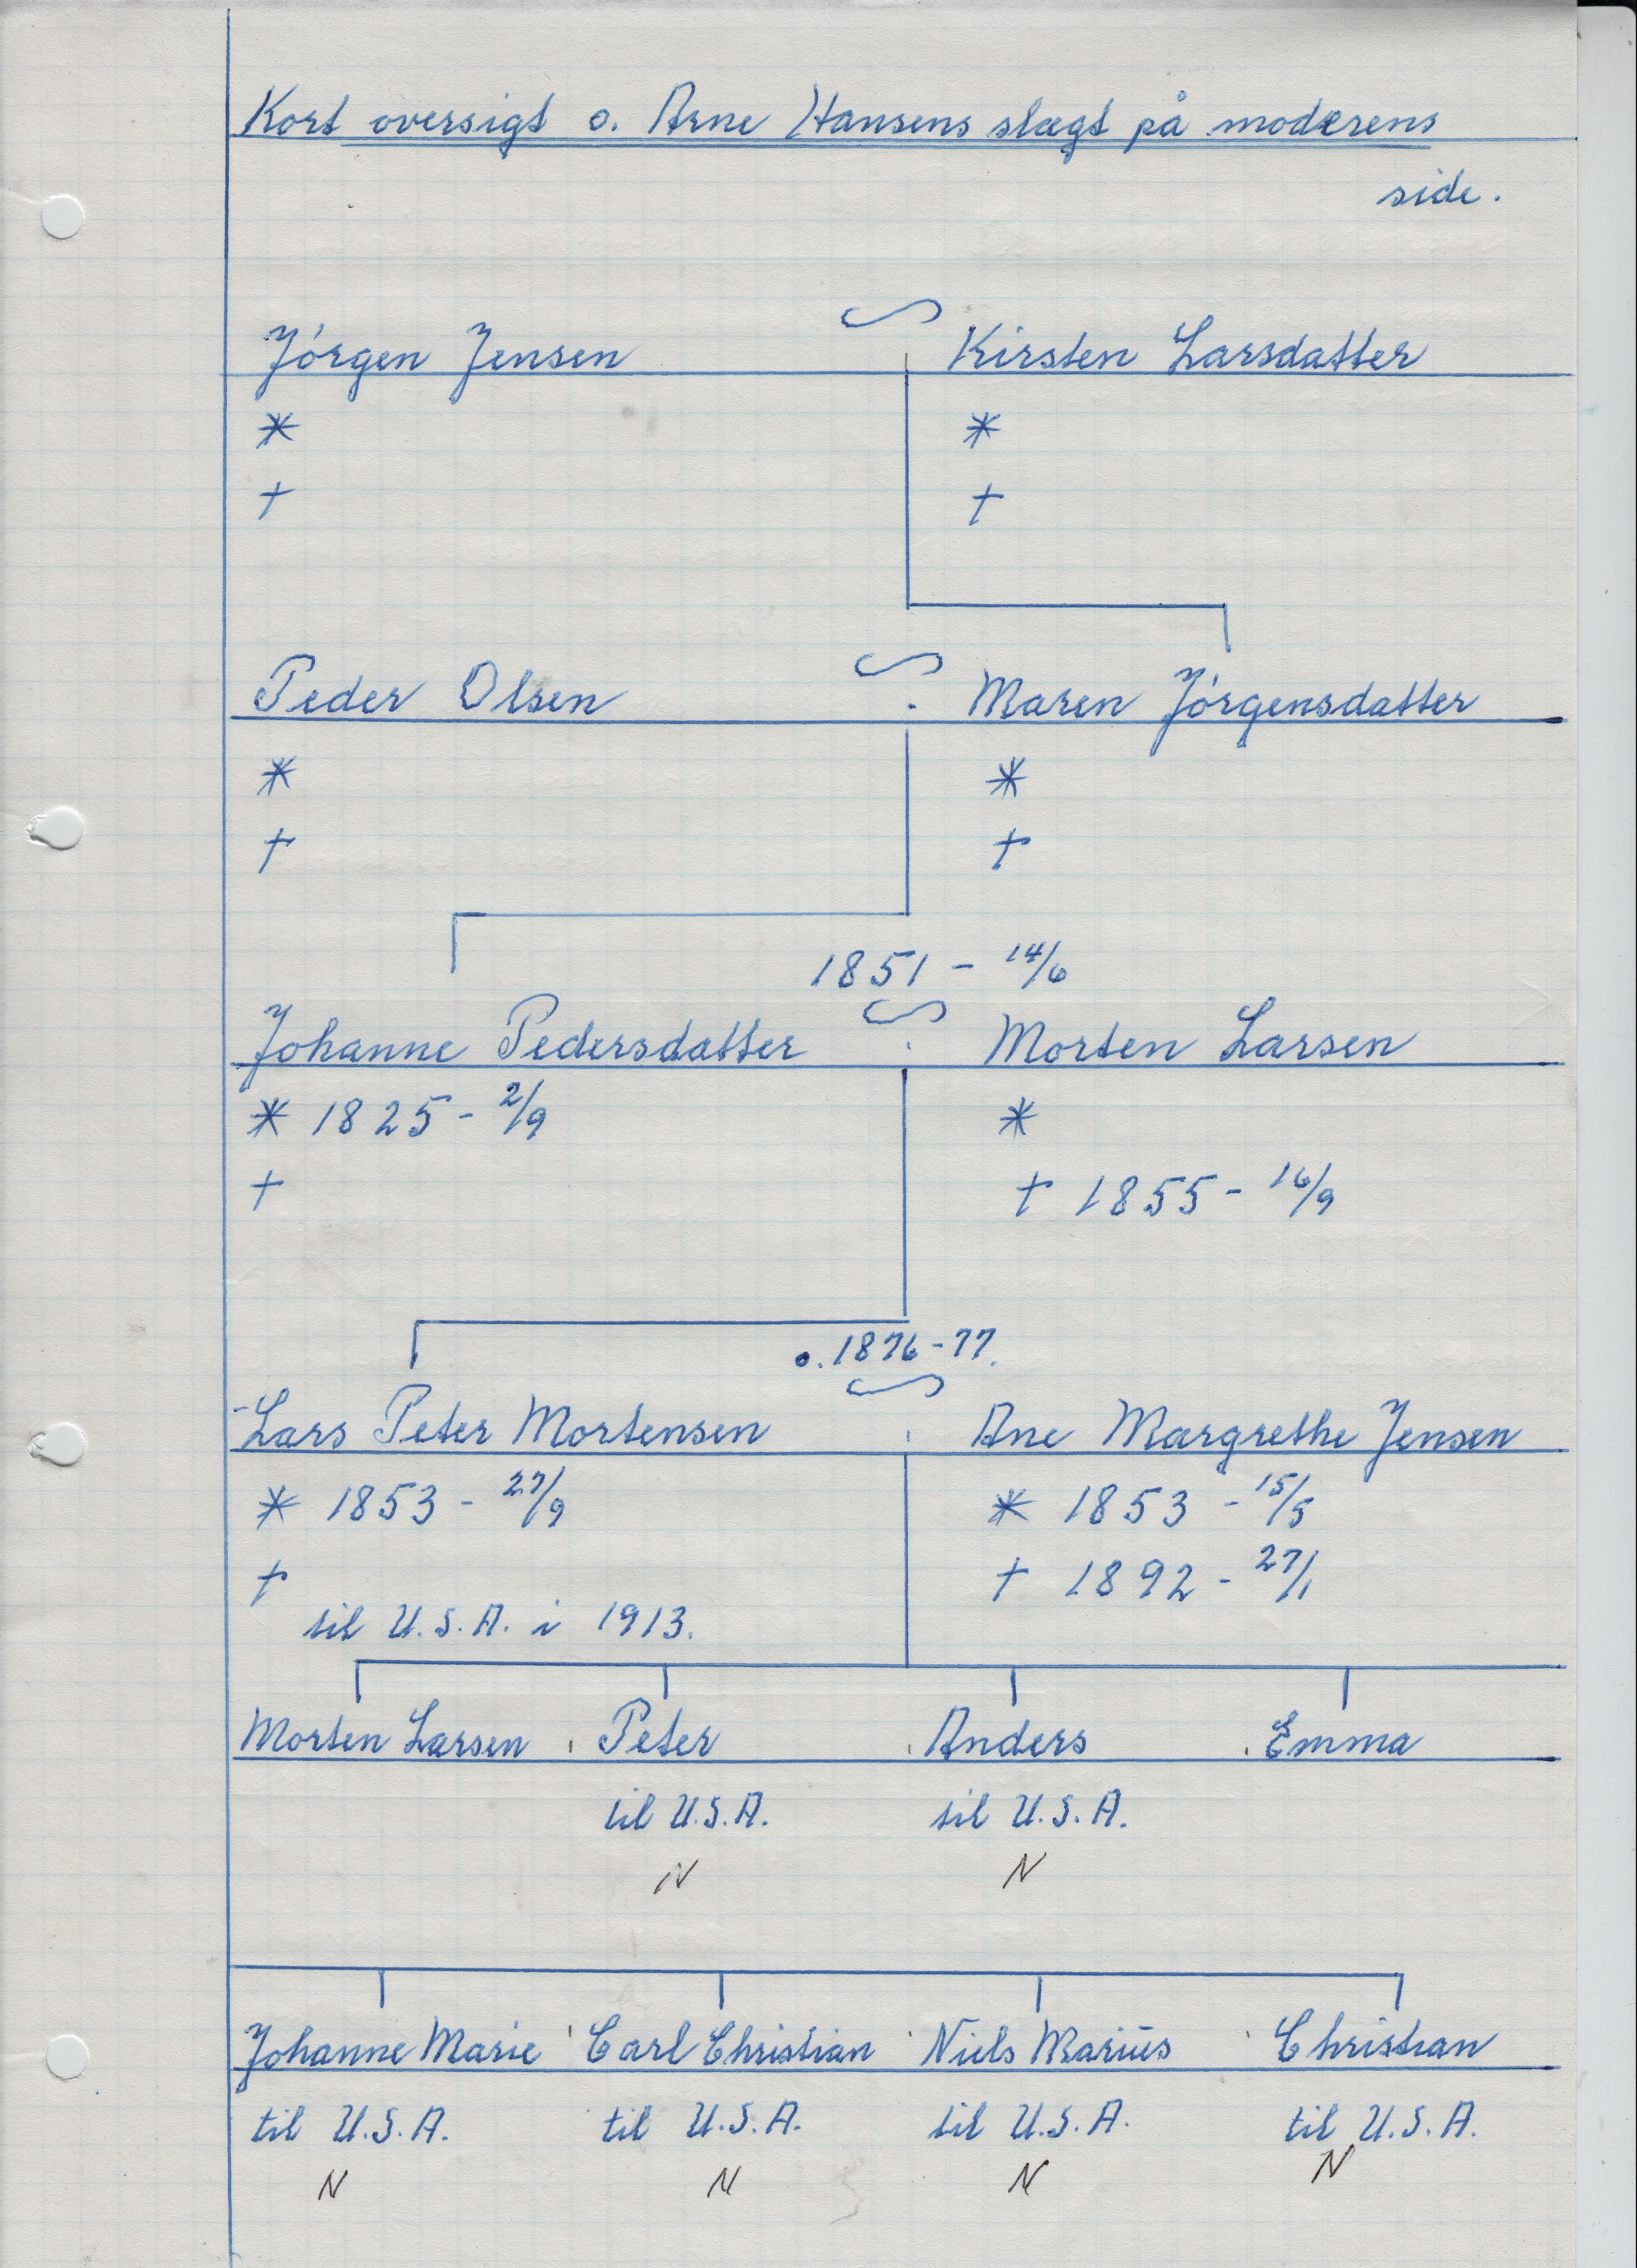 Kort oversigt o. Arne Hansens slægt på moderens
side.
Jórgen Jensen ∽ Kirsten Larsdatter
* *
† †
Peder Olsen ∽ Maren Jórgensdatter
* *
† †
1851 - 14/6
Johanne Pedersdatter ∽ Morten Larsen
* 1825 - 2/9 *
† † 1855 - 16/9
o. 1876-77.
Lars Peter Mortensen ∽ Ane Margrethe Jensen
* 1853 - 27/9 * 1853 - 15/5
† † 1892 - 27/1
til U.S.A. i 1913.
Morten Larsen Peter Anders Emma
til U.S.A. til U.S.A.
N N
Johanne Marie Carl Christian Niels Marius Christian
til U.S.A. til U.S.A. til U.S.A. til U.S.A.
N N N N